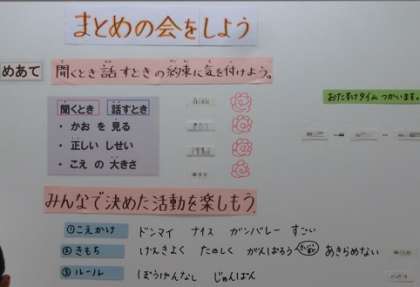 まとめの会をしよう
めあて
聞くとき 話すときの約束に気を付けよう。
聞くとき 話すとき
・かお を 見る
・正しい しせい
・こえ の 大きさ
おたすけタイム つかいます。
みんなで決めた活動を楽しもう。
①こえかけ ドンマイ ナイス ガンバレー すごい
②きもち げんきよく たのしく がんばろう あきらめない
③ルール ぼうげんなし じゅんばん